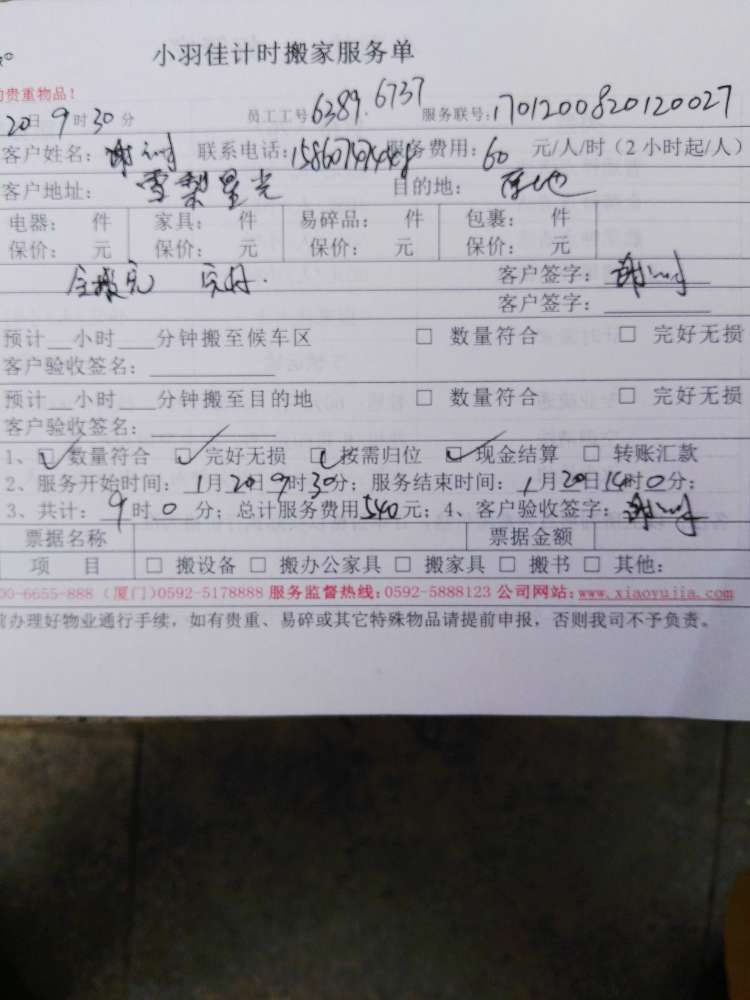 小羽佳计时搬家服务单
的贵重物品！
20日9时30分 员工工号6389.6737 服务联号:1701200820120027
客户姓名：谢 联系电话: 服务费用：60 元/人/时（2小时起/人）
客户地址：雪梨星光 目的地：原地
电器： 件 家具： 件 易碎品： 件 包裹： 件
保价： 元 保价： 元 保价： 元 保价： 元
全搬完 完好. 客户签字：谢
客户签字：
预计__小时___分钟搬至候车区 □ 数量符合 □ 完好无损
客户验收签名：
预计__小时___分钟搬至目的地 □ 数量符合 □ 完好无损
客户验收签名：
1、☑数量符合 ☑完好无损 ☑按需归位 ☑现金结算 □ 转账汇款
2、服务开始时间：1月20日9时30分；服务结束时间：1月20日14时0分；
3、共计：9时0分；总计服务费用540元；4、客户验收签字：谢
票据名称 票据金额
项 目 □ 搬设备 □ 搬办公家具 □ 搬家具 □ 搬书 □ 其他：
00-6655-888（厦门）0592-5178888 服务监督热线:0592-5888123 公司网站:www.xiaoyujia.com
前办理好物业通行手续，如有贵重、易碎或其它特殊物品请提前申报，否则我司不予负责。